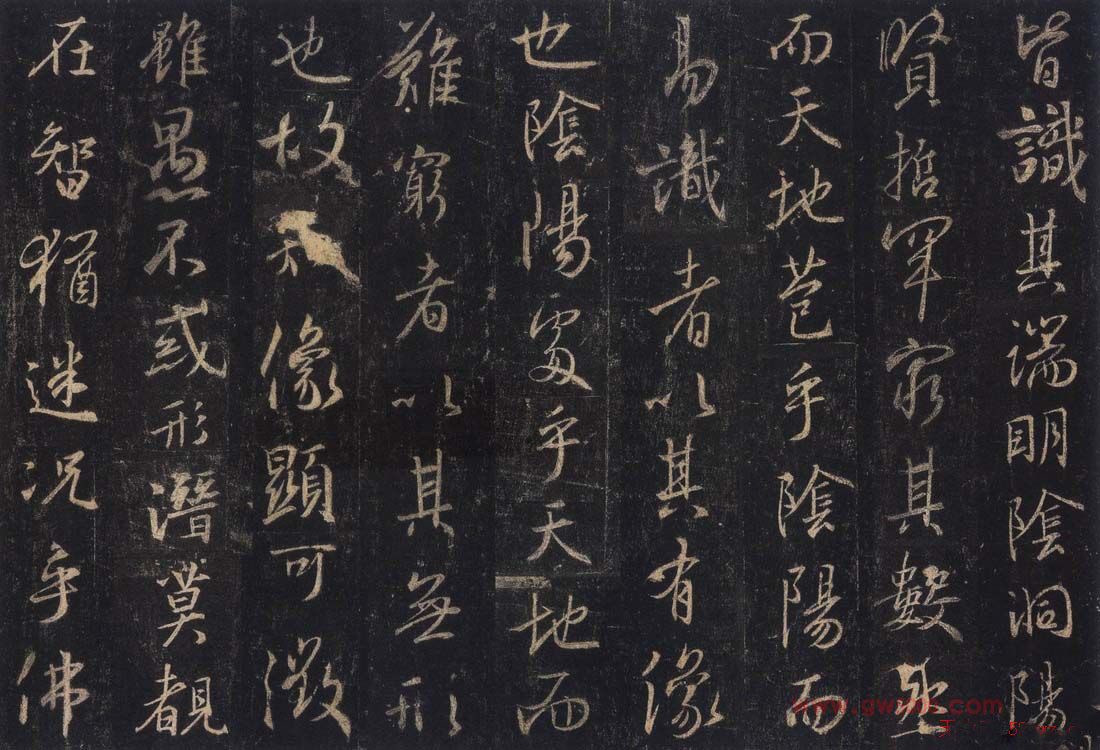 皆識其端明陰洞陽
賢哲罕窮其數
而天地苞乎陰陽而
易識者以其有像
也陰陽處乎天地而
難窮者以其無形
也故知像顯可徵
雖愚不惑形潛莫覩
在智猶迷況乎佛